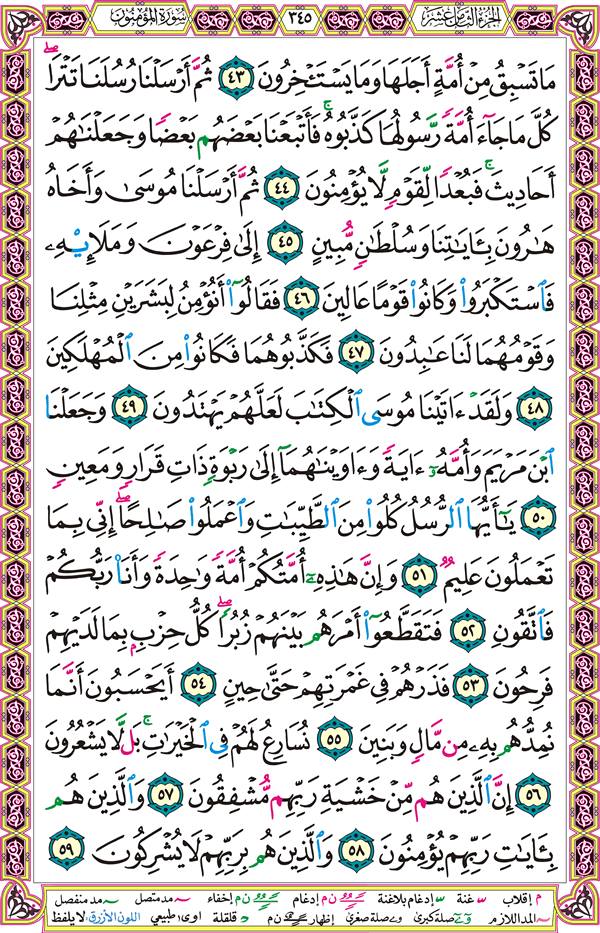 الجزء الثامن عشر ٣٤٥ سورة المؤمنون
مَا تَسْبِقُ مِنْ أُمَّةٍ أَجَلَهَا وَمَا يَسْتَـْٔخِرُونَ ٤٣ ثُمَّ أَرْسَلْنَا رُسُلَنَا تَتْرَاۖ
كُلَّ مَا جَآءَ أُمَّةً رَّسُولُهَا كَذَّبُوهُۚ فَأَتْبَعْنَا بَعْضَهُم بَعْضًا وَجَعَلْنَٰهُمْ
أَحَادِيثَۚ فَبُعْدًا لِّقَوْمٍ لَّا يُؤْمِنُونَ ٤٤ ثُمَّ أَرْسَلْنَا مُوسَىٰ وَأَخَاهُ
هَٰرُونَ بِـَٔايَٰتِنَا وَسُلْطَٰنٍ مُّبِينٍ ٤٥ إِلَىٰ فِرْعَوْنَ وَمَلَإِي۟هِۦ
فَٱسْتَكْبَرُوا۟ وَكَانُوا۟ قَوْمًا عَالِينَ ٤٦ فَقَالُوٓا۟ أَنُؤْمِنُ لِبَشَرَيْنِ مِثْلِنَا
وَقَوْمُهُمَا لَنَا عَٰبِدُونَ ٤٧ فَكَذَّبُوهُمَا فَكَانُوا۟ مِنَ ٱلْمُهْلَكِينَ
٤٨ وَلَقَدْ ءَاتَيْنَا مُوسَى ٱلْكِتَٰبَ لَعَلَّهُمْ يَهْتَدُونَ ٤٩ وَجَعَلْنَا
ٱبْنَ مَرْيَمَ وَأُمَّهُۥٓ ءَايَةً وَءَاوَيْنَٰهُمَآ إِلَىٰ رَبْوَةٍ ذَاتِ قَرَارٍ وَمَعِينٍ
٥٠ يَٰٓأَيُّهَا ٱلرُّسُلُ كُلُوا۟ مِنَ ٱلطَّيِّبَٰتِ وَٱعْمَلُوا۟ صَٰلِحًاۖ إِنِّى بِمَا
تَعْمَلُونَ عَلِيمٌ ٥١ وَإِنَّ هَٰذِهِۦٓ أُمَّتُكُمْ أُمَّةً وَٰحِدَةً وَأَنَا۠ رَبُّكُمْ
فَٱتَّقُونِ ٥٢ فَتَقَطَّعُوٓا۟ أَمْرَهُم بَيْنَهُمْ زُبُرًاۖ كُلُّ حِزْبٍۭ بِمَا لَدَيْهِمْ
فَرِحُونَ ٥٣ فَذَرْهُمْ فِى غَمْرَتِهِمْ حَتَّىٰ حِينٍ ٥٤ أَيَحْسَبُونَ أَنَّمَا
نُمِدُّهُم بِهِۦ مِن مَّالٍ وَبَنِينَ ٥٥ نُسَارِعُ لَهُمْ فِى ٱلْخَيْرَٰتِۚ بَل لَّا يَشْعُرُونَ
٥٦ إِنَّ ٱلَّذِينَ هُم مِّنْ خَشْيَةِ رَبِّهِم مُّشْفِقُونَ ٥٧ وَٱلَّذِينَ هُم
بِـَٔايَٰتِ رَبِّهِمْ يُؤْمِنُونَ ٥٨ وَٱلَّذِينَ هُم بِرَبِّهِمْ لَا يُشْرِكُونَ ٥٩
م إقلاب غنة إدغام بلاغنة ن م إدغام ن م إخفاء مد متصل مد منفصل
المد اللازم صلة كبرى صلة صغرى إظهار ن م قلقلة اوى طبيعي اللون الأزرق: لا يلفظ